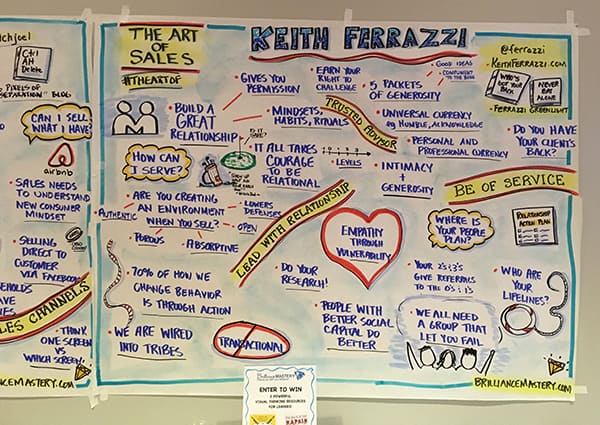 chjoel
Ctrl
Alt
Delete
PIXELS OF
SEPARATION" BLOG
CAN I SELL
WHAT I HAVE
airbnb
• SALES NEEDS
TO UNDERSTAND
NEW CONSUMER
MINDSET
• SELLING
DIRECT TO
CUSTOMER
VIA FACEBOOK
LES CHANNELS
• THINK
ONE SCREEN
VS
WHICH SCREEN!
ANCEMASTERY.COM
THE ART
OF
SALES
#THEARTOF
KEITH FERRAZZI
@ferrazzi
- KEITHFERRAZZI.COM
WHO'S
GOT YOUR
BACK
NEVER
EAT
ALONE
- FERRAZZI GREENLIGHT
• GIVES YOU
PERMISSION
• EARN YOUR
RIGHT TO
CHALLENGE
• 5 PACKETS
OF GENEROSITY
- GOOD IDEAS
• BUILD A
GREAT
RELATIONSHIP
• MINDSETS,
HABITS, RITUALS
TRUSTED ADVISOR
• UNIVERSAL CURRENCY
HUMBLE, ACKNOWLEDGE
• PERSONAL AND
PROFESSIONAL CURRENCY
• DO YOU HAVE
YOUR CLIENT'S
BACK?
HOW CAN
I SERVE?
• IT ALL TAKES
COURAGE
TO BE
RELATIONAL
• LEVELS
• INTIMACY
+
GENEROSITY
BE OF SERVICE
• ARE YOU CREATING
AN ENVIRONMENT
WHEN YOU SELL?
AUTHENTIC
• LOWERS
DEFENSES
• OPEN
• POROUS
• ABSORPTIVE
LEAD WITH RELATIONSHIP
EMPATHY
THROUGH
VULNERABILITY
WHERE IS
YOUR PEOPLE
PLAN?
RELATIONSHIP
ACTION PLAN
• 70% OF HOW WE
CHANGE BEHAVIOR
IS THROUGH ACTION
• DO YOUR
RESEARCH!
• YOUR 2's & 3's
GIVE REFERRALS
TO THE 0's & 1's
• WHO ARE
YOUR
LIFELINES?
• WE ARE WIRED
INTO TRIBES
TRANSACTIONAL
• PEOPLE WITH
BETTER SOCIAL
CAPITAL DO
BETTER
• WE ALL NEED
A GROUP THAT
LET YOU FAIL
BRILLIANCEMASTERY.COM
BrillianceMASTERY
ENTER TO WIN
3 POWERFUL
VISUAL THINKING RESOURCES
FOR LEADERS
NAPKIN